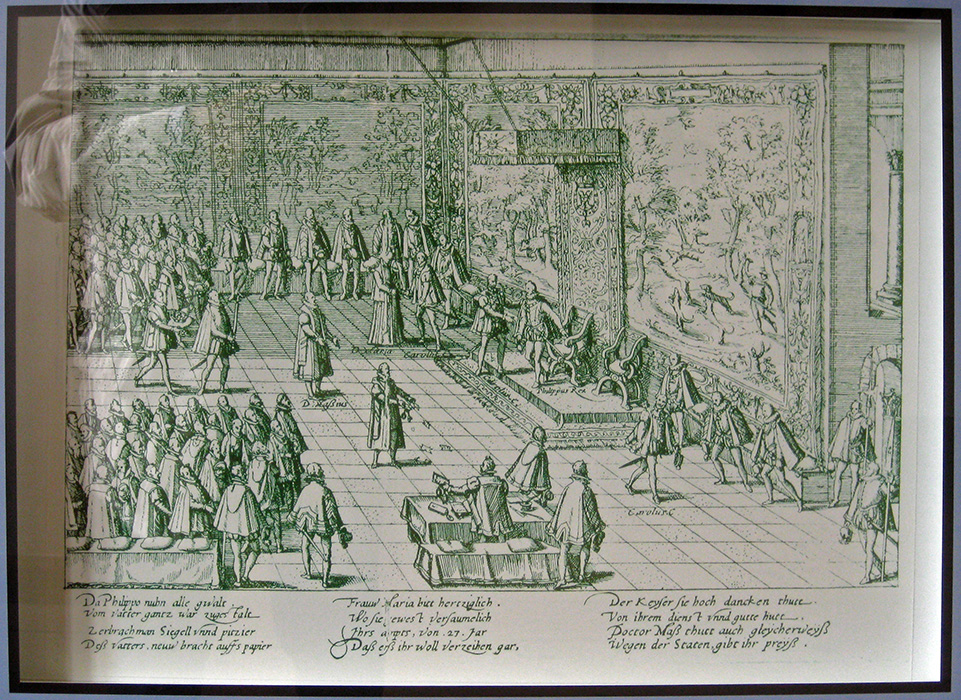 D. Maria
Carolus
Philippus Rex
D. Massius
Carolus C
Da Philippo nuhn alle gwalt
Vom Vatter gantz war zugestalt
Zerbrach man Siegell vnnd pitzier
Deß Vatters, neuw bracht auffs papier
Frauw Maria bitt hertziglich.
Wo sie ewest versäumelich
Ihrs ampts, von 27. Jar
Daß erß ihr woll verzeihen gar,
Der Keyser sie hoch dancken thutt.
Von ihrem dienst vnnd gutte hutt.
Doctor Maß thutt auch gleycherweyß
Wegen der Staten, gibt ihr preyß.